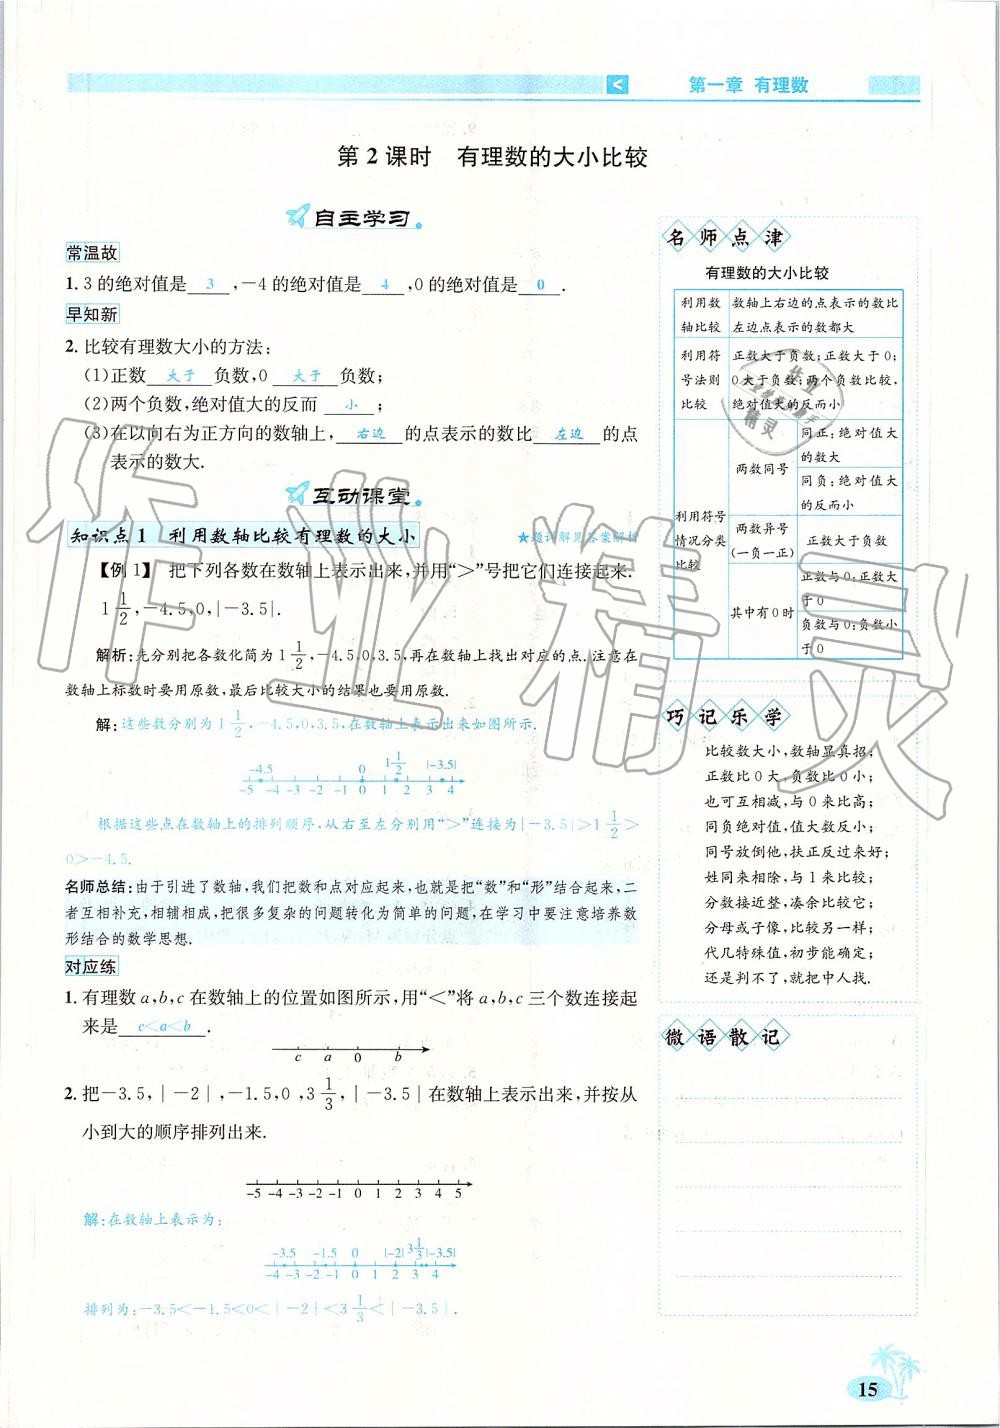 第一章 有理数
第2课时 有理数的大小比较
自主学习
常温故
1.3的绝对值是 3 ,-4的绝对值是 4 ,0的绝对值是 0 .
早知新
2.比较有理数大小的方法:
(1)正数 大于 负数,0 大于 负数;
(2)两个负数,绝对值大的反而 小 ;
(3)在以向右为正方向的数轴上, 右边 的点表示的数比 左边 的点
表示的数大.
互动课堂
知识点1 利用数轴比较有理数的大小 ★题详解见答案解析
【例1】 把下列各数在数轴上表示出来,并用“>”号把它们连接起来.
1 1/2,-4.5,0,|-3.5|.
解析:先分别把各数化简为1 1/2,-4.5,0,3.5,再在数轴上找出对应的点.注意在
数轴上标数时要用原数,最后比较大小的结果也要用原数.
解:这些数分别为1 1/2,-4.5,0,3.5,在数轴上表示出来如图所示.
-4.5 0 1 1/2 |-3.5|
-5 -4 -3 -2 -1 0 1 2 3 4
根据这些点在数轴上的排列顺序,从右至左分别用“>”连接为|-3.5|>1 1/2>
0>-4.5.
名师总结:由于引进了数轴,我们把数和点对应起来,也就是把“数”和“形”结合起来,二
者互相补充,相辅相成,把很多复杂的问题转化为简单的问题,在学习中要注意培养数
形结合的数学思想.
对应练
1.有理数a,b,c在数轴上的位置如图所示,用“<”将a,b,c三个数连接起
来是 c<a<b .
c a 0 b
2.把-3.5,|-2|,-1.5,0,3 1/3,|-3.5|在数轴上表示出来,并按从
小到大的顺序排列出来.
-5 -4 -3 -2 -1 0 1 2 3 4 5
解:在数轴上表示为:
-3.5 -1.5 0 |-2| 3 1/3 |-3.5|
-4 -3 -2 -1 0 1 2 3 4
排列为:-3.5<-1.5<0<|-2|<3 1/3<|-3.5|.
名师点津
有理数的大小比较
利用数
轴比较
数轴上右边的点表示的数比
左边点表示的数都大
利用符
号法则
比较
正数大于负数;正数大于0;
0大于负数;两个负数比较,
绝对值大的反而小
利用符号
情况分类
比较
两数同号
同正:绝对值大
的数大
同负:绝对值大
的反而小
两数异号
(一负一正)
正数大于负数
其中有0时
正数与0:正数大
于0
负数与0:负数小
于0
巧记乐学
比较数大小,数轴显真招;
正数比0大,负数比0小;
也可互相减,与0来比高;
同负绝对值,值大数反小;
同号放倒他,扶正反过来好;
姓同来相除,与1来比较;
分数接近整,凑余比较它;
分母或子像,比较另一样;
代几特殊值,初步能确定;
还是判不了,就把中人找.
微语散记
15
作业精灵